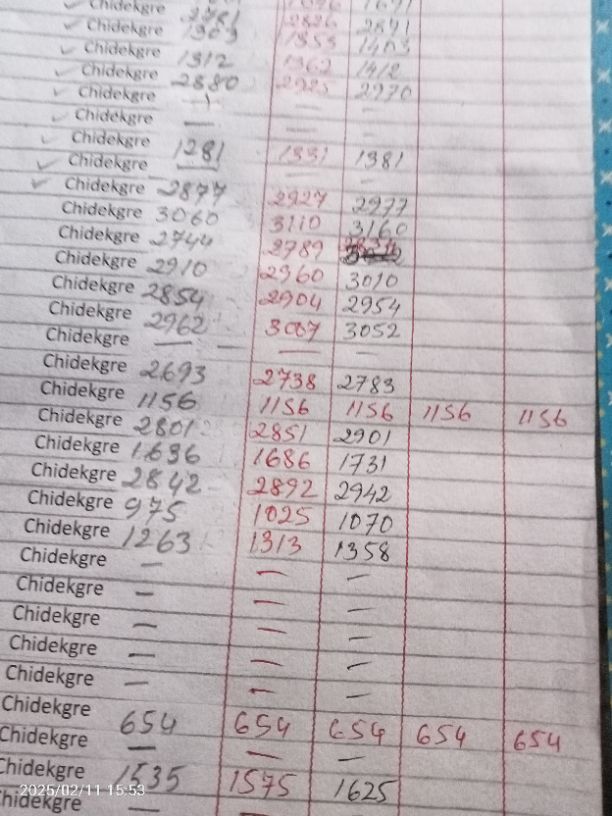 Chidekgre
Chidekgre 2826 2871
Chidekgre 1303 1353 1403
Chidekgre 1312 1362 1412
Chidekgre 2880 2925 2970
Chidekgre — — —
Chidekgre — — —
Chidekgre 1281 1331 1381
Chidekgre — — —
Chidekgre 2877 2927 2977
Chidekgre 3060 3110 3160
Chidekgre 2744 2789
Chidekgre 2910 2960 3010
Chidekgre 2854 2904 2954
Chidekgre 2962 3007 3052
Chidekgre — — —
Chidekgre 2693 2738 2783
Chidekgre 1156 1156 1156 1156 1156
Chidekgre 2801 2851 2901
Chidekgre 1636 1686 1731
Chidekgre 2842 2892 2942
Chidekgre 975 1025 1070
Chidekgre 1263 1313 1358
Chidekgre — — —
Chidekgre — — —
Chidekgre — — —
Chidekgre — — —
Chidekgre — — —
Chidekgre 654 654 654 654 654
Chidekgre — — —
Chidekgre 1535 1575 1625
Chidekgre — —
2025/02/11 15:53